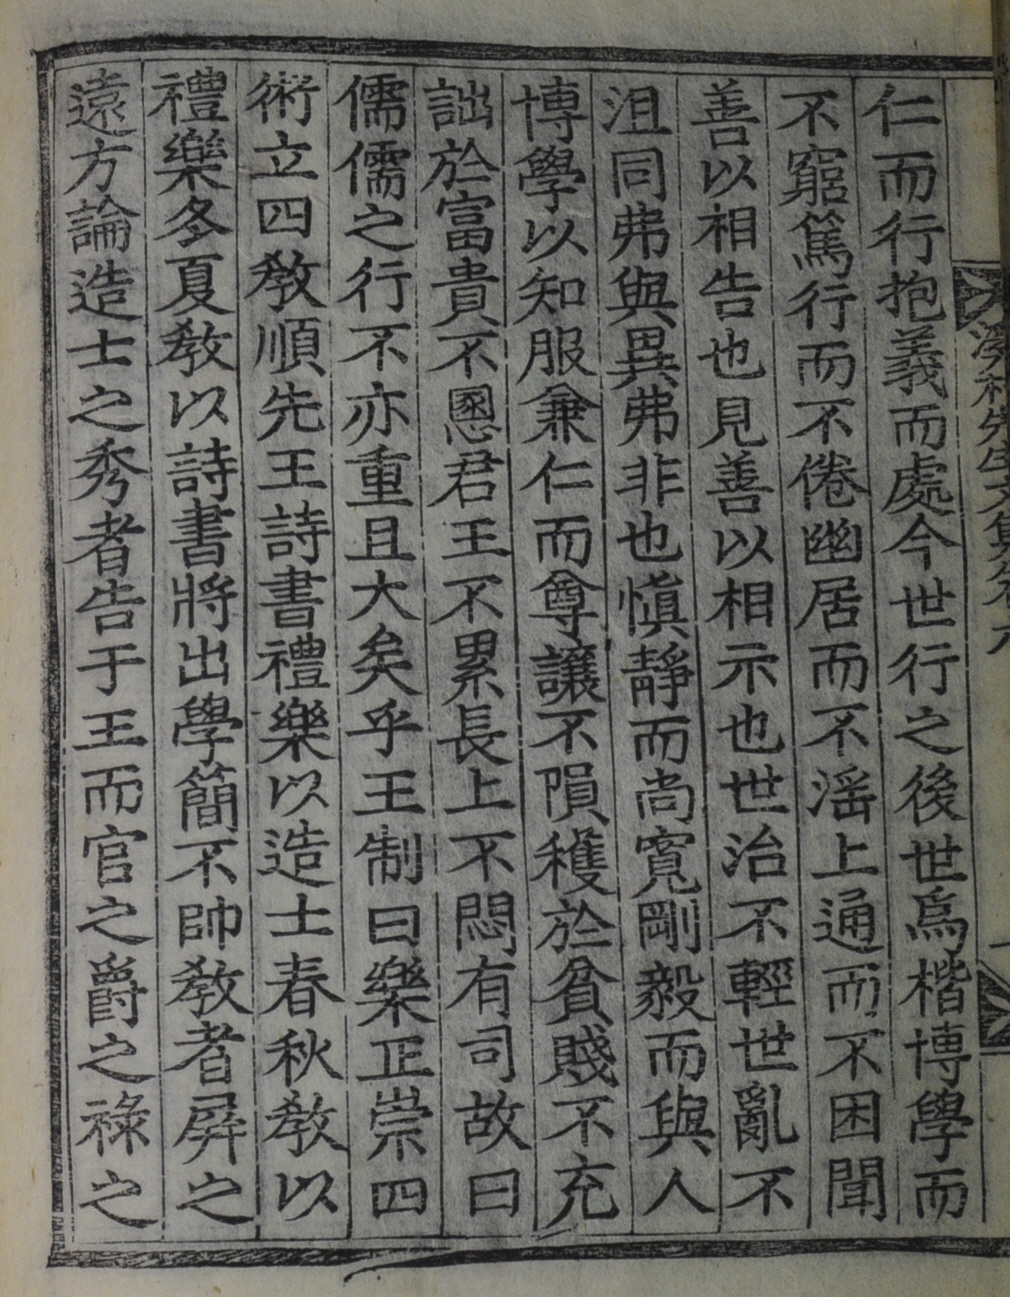 仁而行抱義而處今世行之後世爲楷博學而
不窮篤行而不倦幽居而不滛上通而不困聞
善以相告也見善以相示也世治不輕世亂不
沮同弗與異弗非也愼靜而尚寬剛毅而與人
博學以知服兼仁而尊讓不隕穫於貧賤不充
詘於富貴不慁君王不累長上不悶有司故曰
儒儒之行不亦重且大矣乎王制曰樂正崇四
術立四敎順先王詩書禮樂以造士春秋敎以
禮樂冬夏敎以詩書將出學簡不帥敎者屏之
遠方論造士之秀者告于王而官之爵之祿之
先生文集卷六